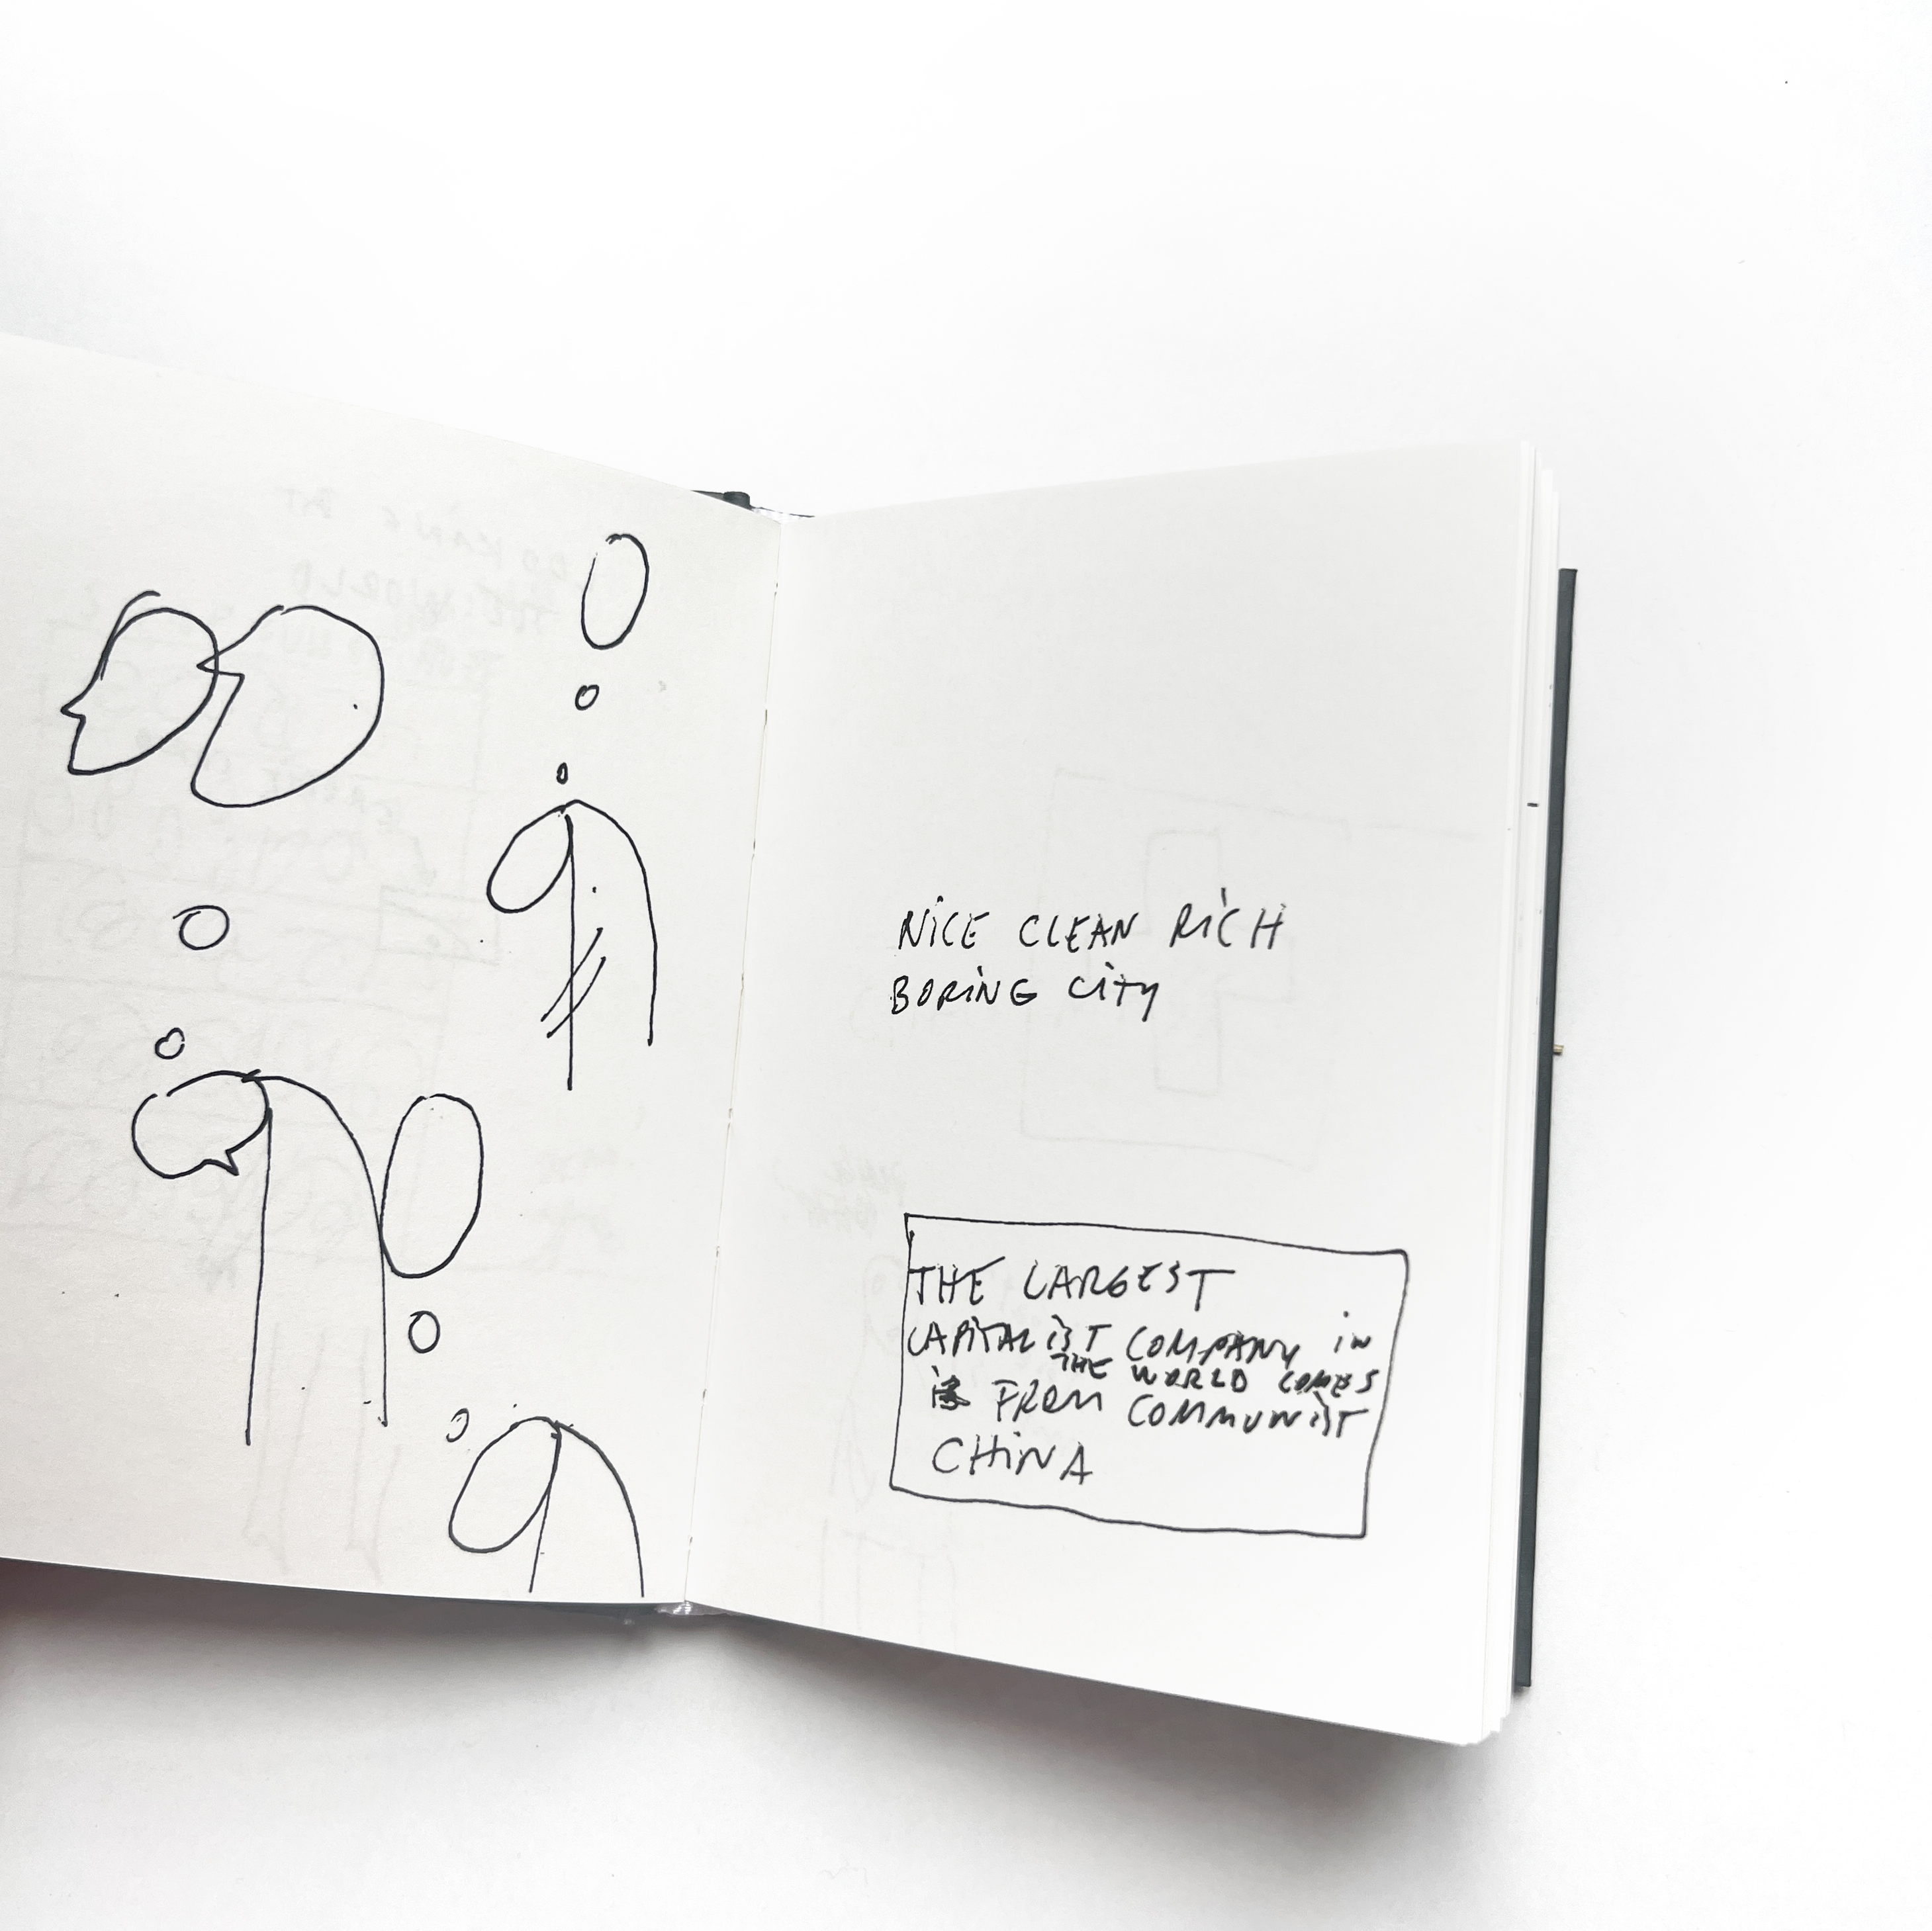 NICE CLEAN RICH
BORING CITY
THE LARGEST
CAPITALIST COMPANY IN
THE WORLD COMES
FROM COMMUNIST
CHINA